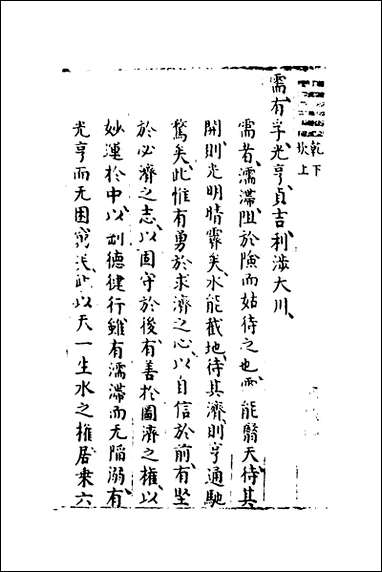 乾下
坎上
需有孚光亨貞吉利涉大川
需者濡滯阻於險而姑待之也雲能翳天待其
開則光明晴霽矣水能截地待其濟則亨通馳
騖矣此惟有勇於求濟之心以自信於前有堅
於必濟之志以固守於後有善於圖濟之權以
妙運於中以剛德健行雖有濡滯而无陷溺有
光亨而无困窮矣此以天一生水之權居乘六